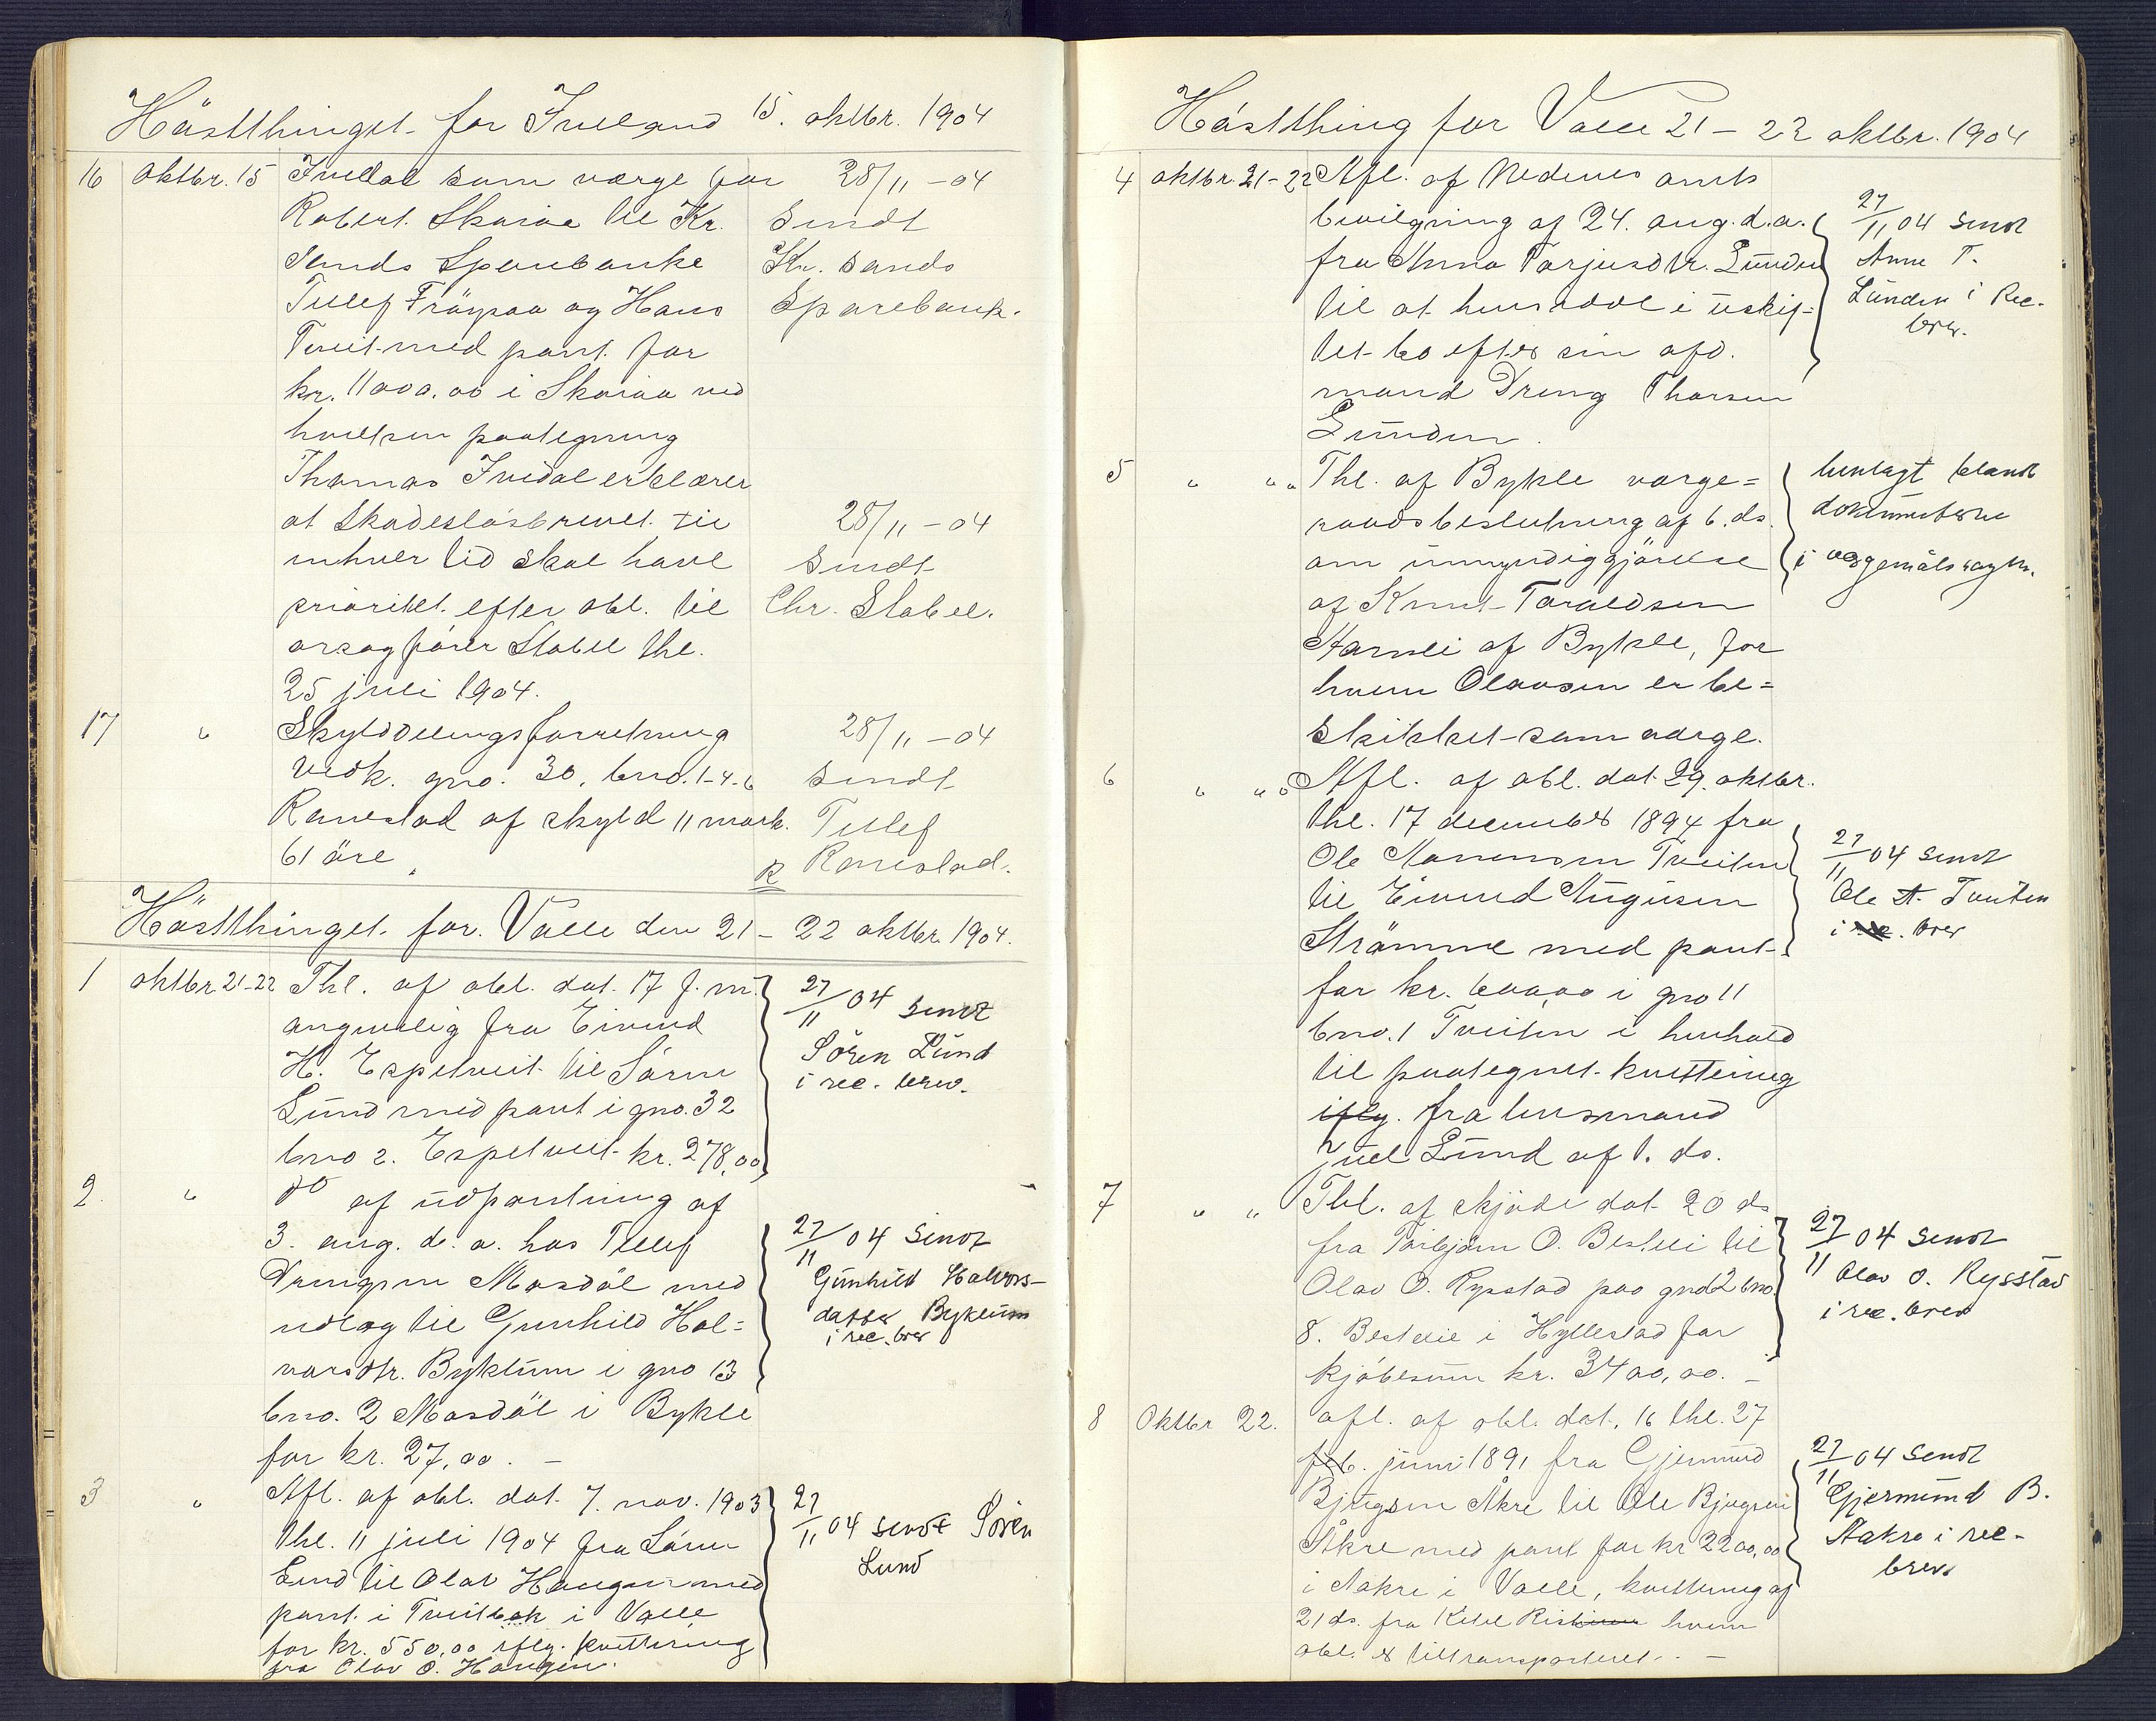 Hästthinget for Iveland 15. oktbr. 1904
16 oktbr. 15 Ivedal som værge for 28/11-04
Robert Skaiaa til Kr. Sendt
sands Sparebanke Kr. sands
Tellef Fröysaa og Hans Sparebank.
Tveit med pant for
kr. 11000.00 i Skaiaa ved
hvilken paategning
Thomas Ivedal erklærer
at skadeslösbrevet til 28/11-04
enhver tid skal have Sendt
prioritet efter obl. til Chr. Stabel.
orsagförer Stabel thl.
25 juli 1904.
17 " Skylddelingsforretning 28/11-04
vedk. gno. 30, bno. 1-4-6 Sendt
Ranestad af skyld 11 mark. Tellef
61 öre. R Ranestad.
Hästthinget for Valle den 21-22 oktbr 1904.
1 oktbr 21-22 Thl. af obl. dat. 17 f. m. 27/11 04 sendt
angivelig fra Eivind Sören Lund
H. Espetveit til Sören i rec. brev.
Lund med pant i gno. 32
bno 2. Espetveit kr. 278,00
2. " do af udpantning af
3. aug. d. a. hos Tellef 27/11 04 sendt
Drengsen Mosdøl med Gunhild Halvors-
udlæg til Gunhild Hal= datter Byklum
vorsdtr. Byklum i gno 13 i rec. brev
bno. 2 Mosdöl i Bykle
for kr. 27,00. -
3 " Afl. af obl. dat. 7. nov. 1903 27/11 04 sendt Sören
thl. 11 juli 1904 fra Sören Lund
Lund til Olav Haugen med
pant i Tveitbak i Valle
for kr. 550,00 iflg. kvittering
fra Olav O. Haugen.
Hästthing for Valle 21-22 oktbr. 1904
4 oktbr. 21-22 Afl. af Nedenes amts
bevilgning af 24. aug. d. a. 27/11 04 sendt
fra Anna Tarjusdtr. Lunden Anne T.
til at hensidde i uskif= Lunden i Rec-
tet bo efter sin afd. brev.
mand Dreng Thorsen
Lunden.
5 " " " Thl. af Bykle værge= henlagt blandt
raadsbeslutning af 6. ds. dokumenterne
om umyndiggjörelse i vergemåls sagen.
af Knut Taraldsen
Hamli af Bykle, for
hvem Olavsen er be=
skikket som værge.
6 " " " Afl. af obl. dat. 29. oktbr.
thl. 17 december 1894 fra
Ole Aanensen Tveiten 27/11 04 sendt
til Eivind Augusen Ole A. Tveiten
Strömme med pant i rec. brev
for kr. 600,00 i gno 11
bno. 1 Tveiten i henhold
til paategnet kvittering
iflg. fra lensmand
Juel Lund af 1. ds.
7 " " Thl. af skjöde dat. 20 ds
fra Torbjörn O. Besteli til 27/11 04 sendt
Olav O. Rysstad paa gno 2 bno Olav O. Rysstad
8. Bestelie i Hyllestad for i rec. brev
kjöbesum kr. 3400,00. -
8 Oktbr 22. afl. af obl. dat. 16 thl. 27
feb. juni 1891 fra Gjermund 27/11 04 sendt
Bjugsen Åkre til Ole Bjugsen Gjermund B.
Åkre med pant for kr 2200,00 Aakre i rec-
i Aakre i Valle, kvittering af brev
21 ds. fra Ketil hvem
obl. er tiltransporteret. -